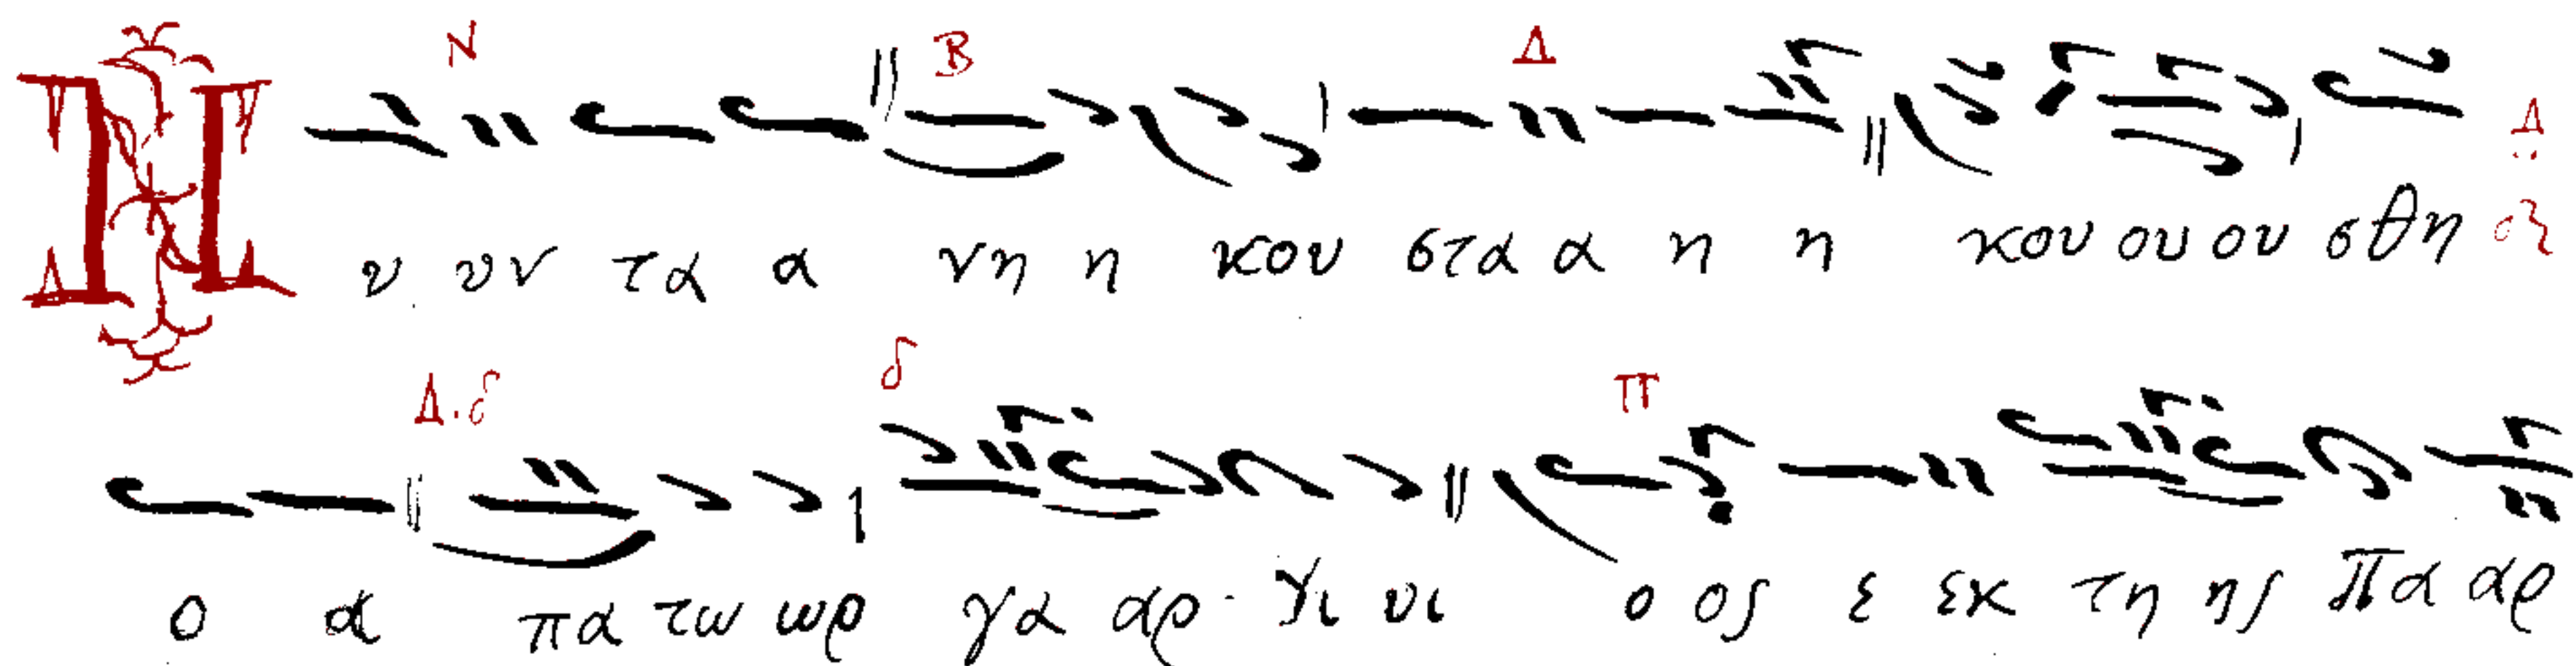 Ν Β Δ
Ν υ υν τα α νη η κου στα α η η κου ου ου σθη
Δ.δ δ π
ο α πα τω ωρ γα αρ υι υι ο ος ε εκ τη ης Πα αρ